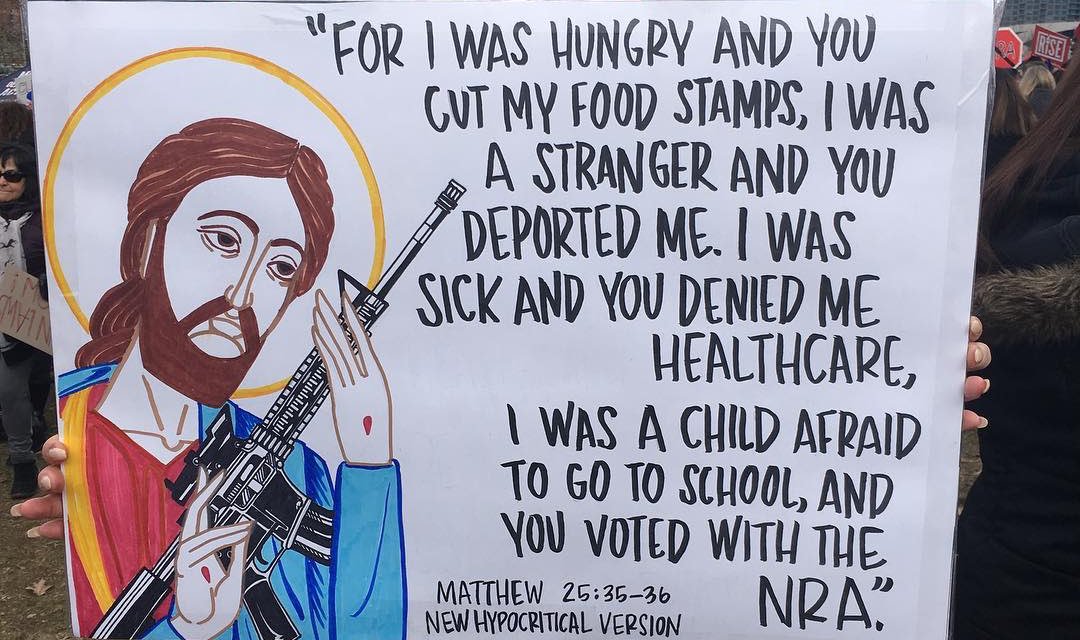 "FOR I WAS HUNGRY AND YOU
CUT MY FOOD STAMPS, I WAS
A STRANGER AND YOU
DEPORTED ME. I WAS
SICK AND YOU DENIED ME
HEALTHCARE,
I WAS A CHILD AFRAID
TO GO TO SCHOOL, AND
YOU VOTED WITH THE
NRA."
MATTHEW 25:35-36
NEW HYPOCRITICAL VERSION
RISE